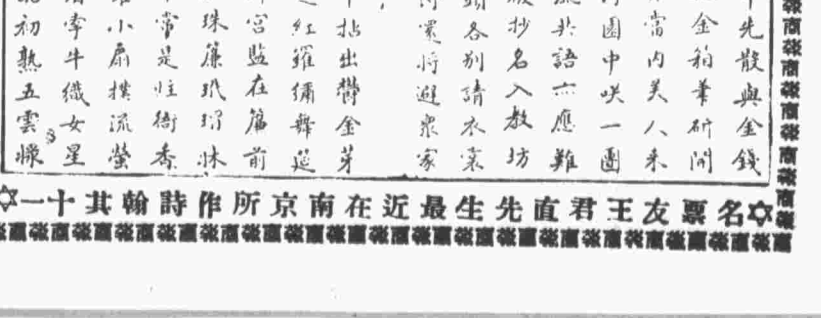 先散與金錢
金箱筆硯開
當內美人來
園中咲一團
共語亦應難
抄名入教坊
各別請衣裳
還將避眾家
拈出鬱金芽
紅羅繡舞筵
宮監在簾前
珠簾玳瑁牀
常是炷衙香
小扇撲流螢
牽牛織女星
初熟五雲漿
名票友王君直先生最近在南京所作詩翰其十一